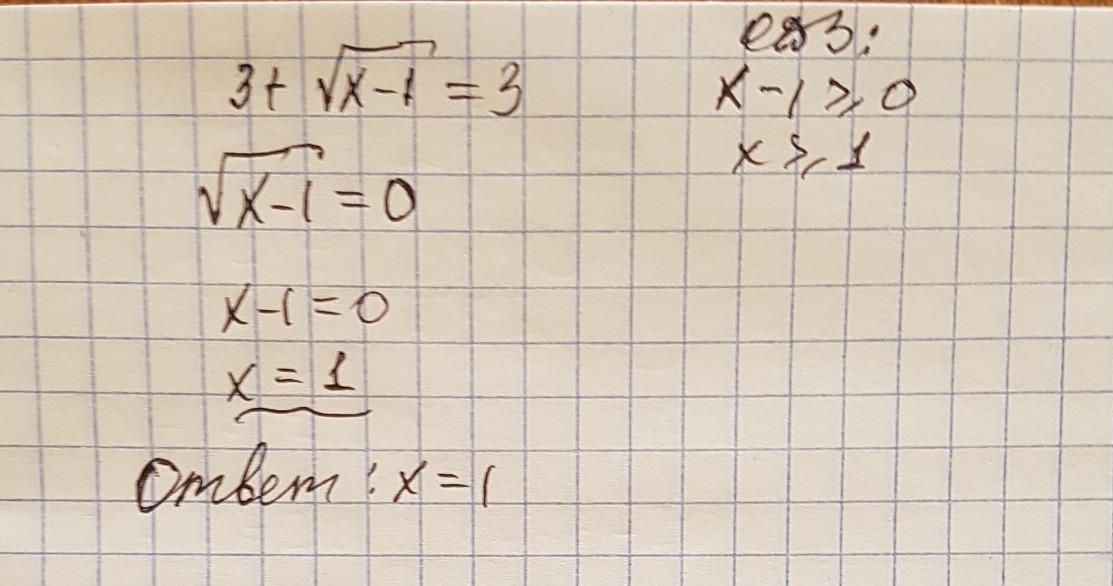 3+ √x-1 = 3
√x-1 = 0
x-1=0
x = 1
Ответ: x=1
одз:
x-1 ≥ 0
x ≥ 1